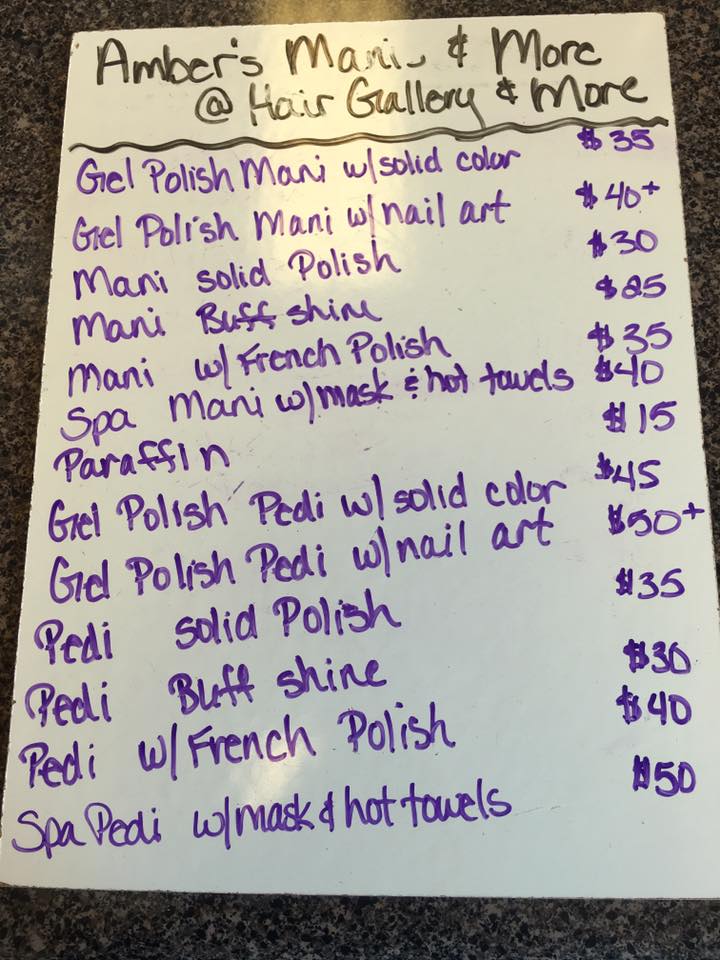 Amber's Mani's & More
@ Hair Gallery & More
Gel Polish Mani w/solid color $35
Gel Polish Mani w/nail art $40+
Mani solid Polish $30
Mani Buff shine $25
Mani w/ French Polish $35
Spa Mani w/mask & hot towels $40
Paraffin $15
Gel Polish Pedi w/solid color $45
Gel Polish Pedi w/nail art $50+
Pedi solid Polish $35
Pedi Buff shine $30
Pedi w/French Polish $40
Spa Pedi w/mask & hot towels $50